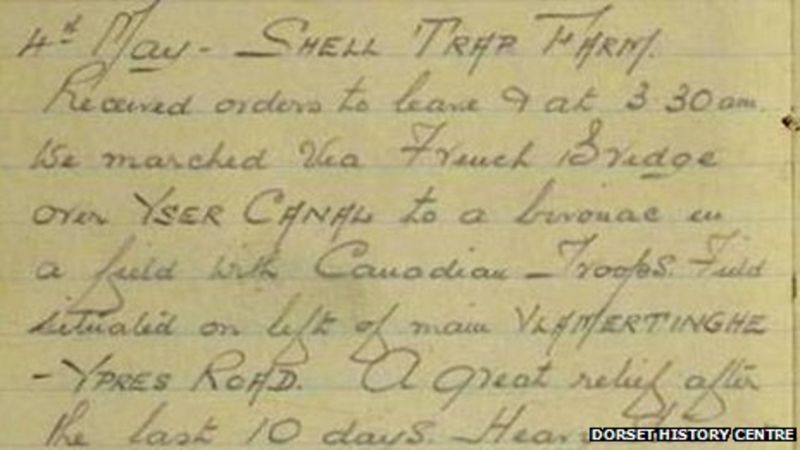 4th May - SHELL TRAP FARM.
Received orders to leave & at 3 30 am.
We marched via French Bridge
over YSER CANAL to a bivouac in
a field with Canadian Troops. Field
situated on left of main VLAMERTINGHE
- YPRES ROAD. A great relief after
the last 10 days.
DORSET HISTORY CENTRE